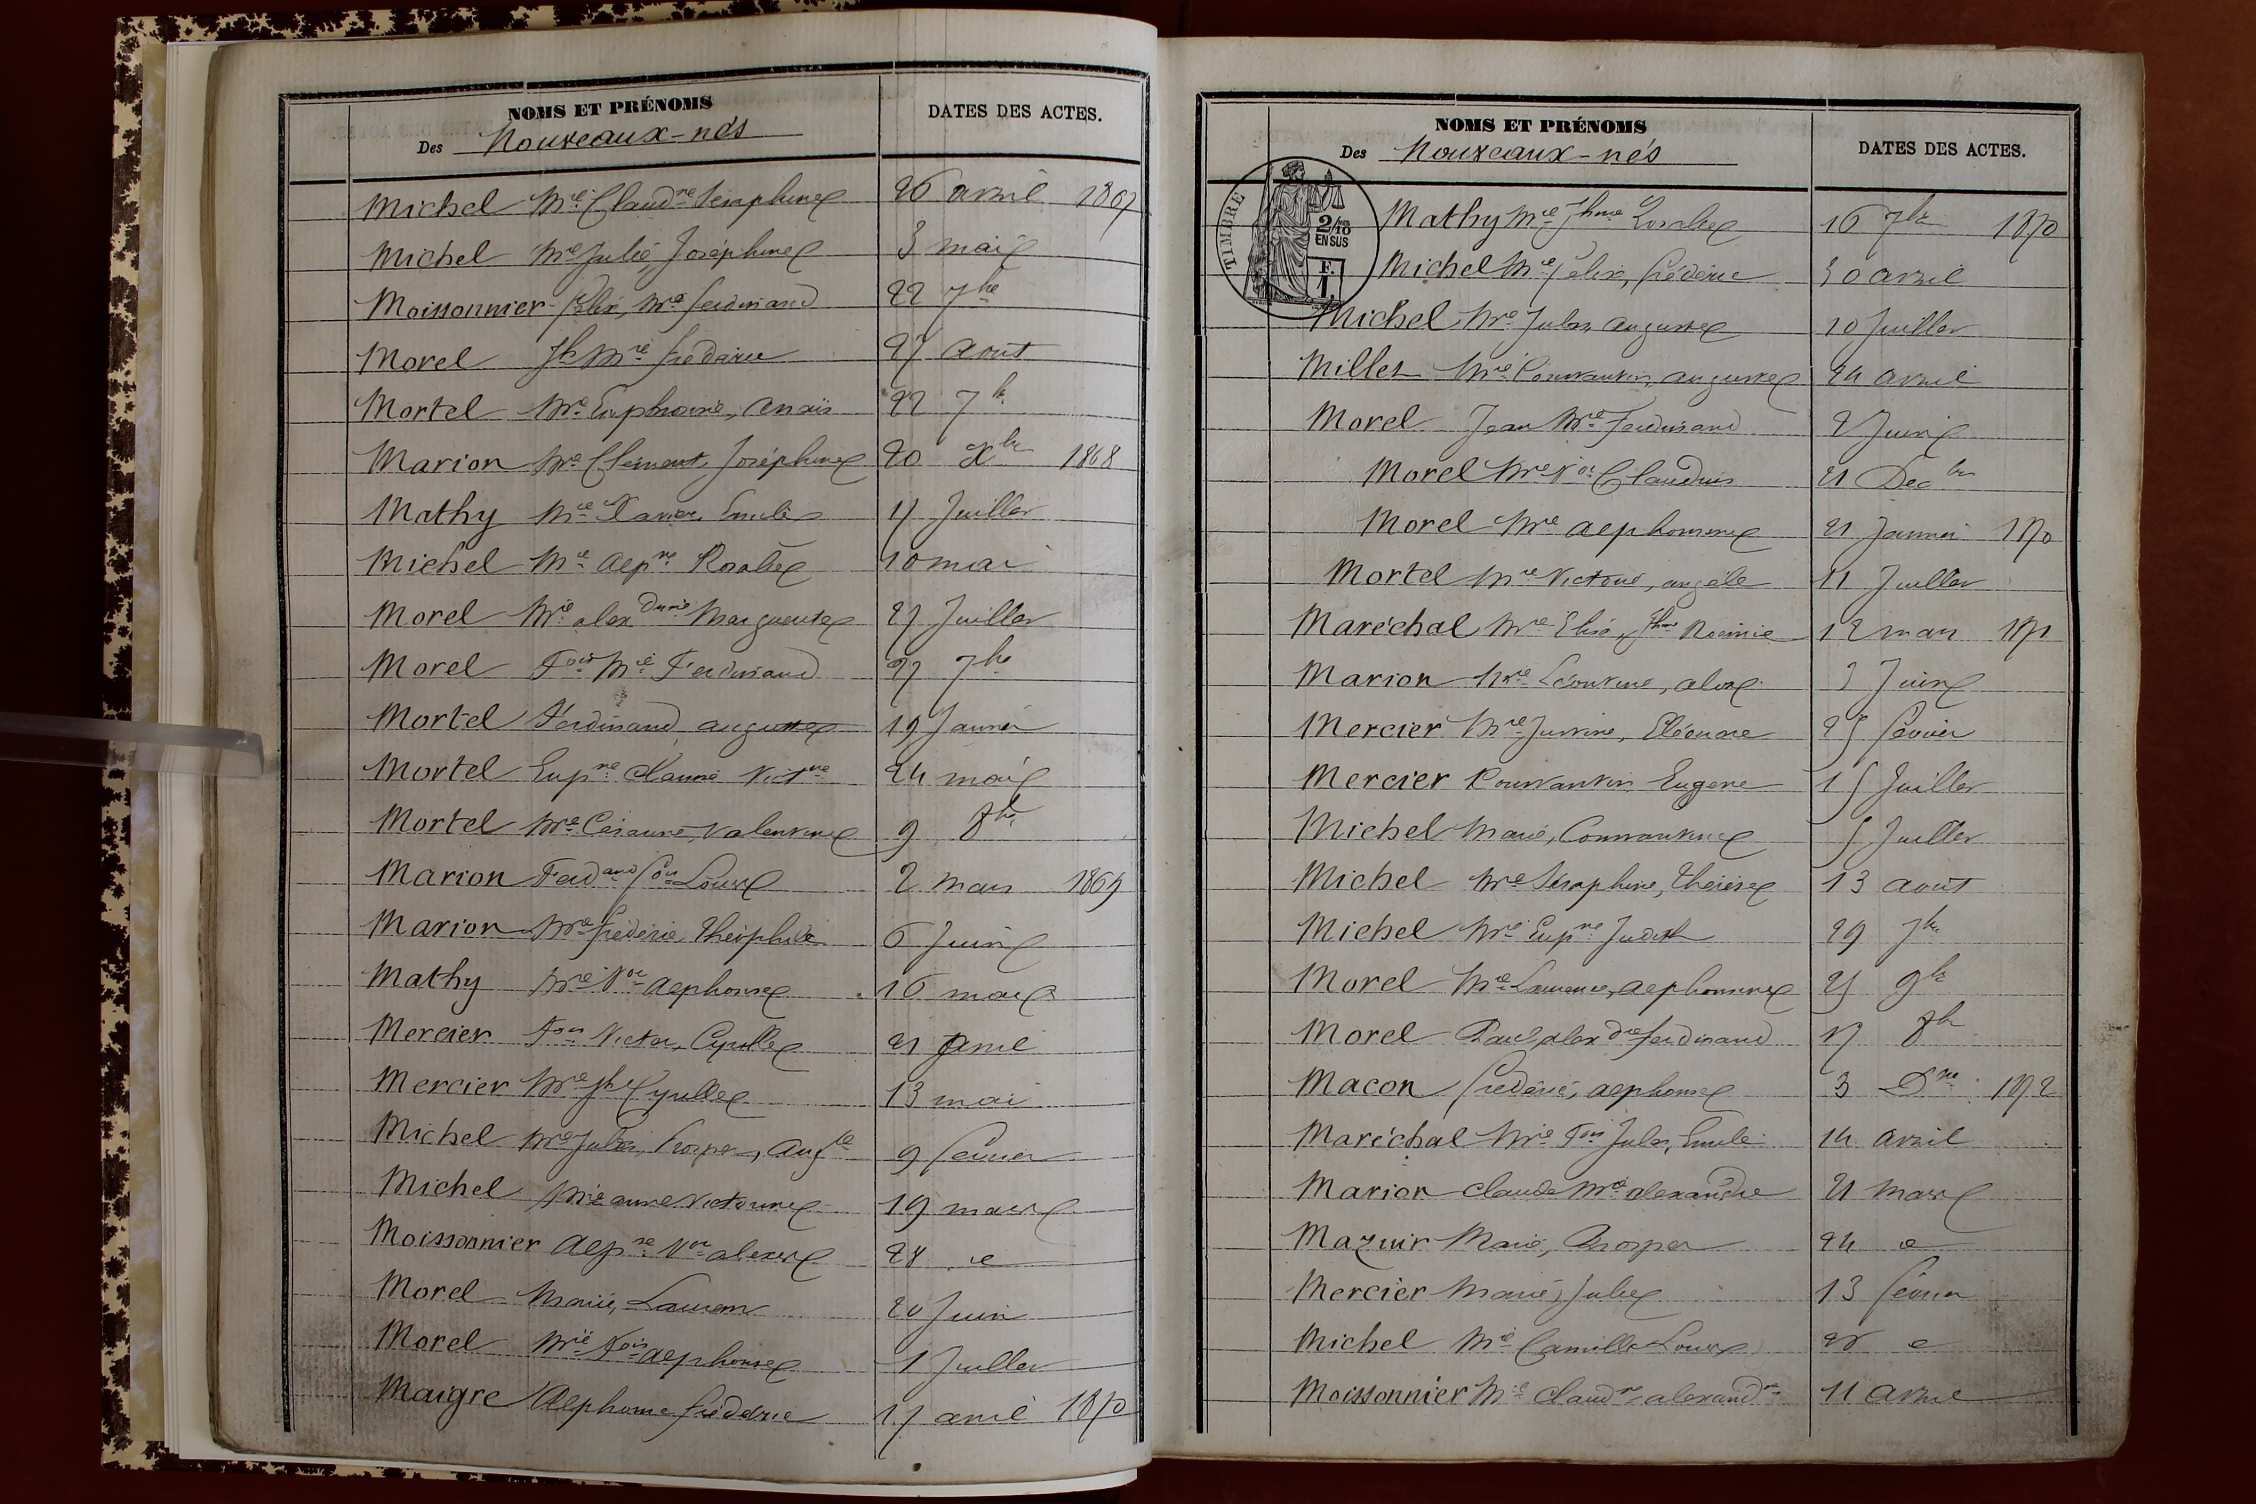 NOMS ET PRÉNOMS
DATES DES ACTES.
Des Nouveaux-nés
Michel Mie Claudne Séraphine 26 avril 1867
Michel Mie Julie, Joséphine 3 mai
Moissonnier Félix, Mie Ferdinand 22 7bre
Morel Jh Mie Frédéric 27 août
Mortel Mie Euphrasie, Anaïs 22 7bre
Marion Mie Clément, Joséphine 20 Xbre 1868
Mathy Mie Xavier, Emile Juillet
Michel Mie Alpne Rosalie 10 mai
Morel Mie alexdrine Marguerite 27 Juillet
Morel Fois Mie Ferdinand 27 7bre
Mortel Ferdinand, auguste 19 Janvier
Mortel Eupne Claurie Victne 24 mai
Mortel Mie Césarine, Valentine 9 8bre
Marion Ferdand Fois Louis 2 mars 1869
Marion Mie Frédéric, Théophile 6 Juin
Mathy Mie Vor Alphonse 16 mars
Mercier Fois Victor, Cyrille 21 avril
Mercier Mie Jh Cyrille 13 mai
Michel Mie Jules, Prosper, Augte 9 Février
Michel Mie anne Victorine 19 mars
Moissonnier Alpse Vor alexis 28 e
Morel Marie, Laurent 20 Juin
Morel Mie Fois Alphonse 1 Juillet
Maigre Alphonse Frédéric 17 avril 1870
NOMS ET PRÉNOMS
DATES DES ACTES.
Des Nouveaux-nés
TIMBRE
2/10
EN SUS
F.
1
Mathy Mie Jhine Rosalie 16 7bre 1870
Michel Mie Félix, Frédéric 30 avril
Michel Mie Jules, auguste 10 Juillet
Millet Mie Constantin, auguste 24 avril
Morel Jean Mie Ferdinand 2 Juin
Morel Mie Vor Claudius 21 Decbre
Morel Mie Alphonsine 21 Janvier 1870
Mortel Mie Victoire, angèle 11 Juillet
Maréchal Mie Elisa, Jhine Noémie 12 mars 1871
Marion Mie Léontine, aloïse Juin
Mercier Mie Justine, Eléonore 25 Février
Mercier Constantin Eugène 15 Juillet
Michel Marie, Constantine 5 Juillet
Michel Mie Séraphine, Thérèse 13 août
Michel Mie Eupne Judith 29 7bre
Morel Mie Laurence, Alphonsine 25 9bre
Morel Paul, alexdre Ferdinand 17 8bre
Macon Frédéric, Alphonse 3 1872
Maréchal Mie Fois Jules, Emile 14 avril
Marion Claude Mie alexandre 21 mars
Mazuir Marie, Prosper 24 e
Mercier Marie, Julie 13 Février
Michel Mie Camille Louis 28 e
Moissonnier Mie Claudne alexandne 11 avril